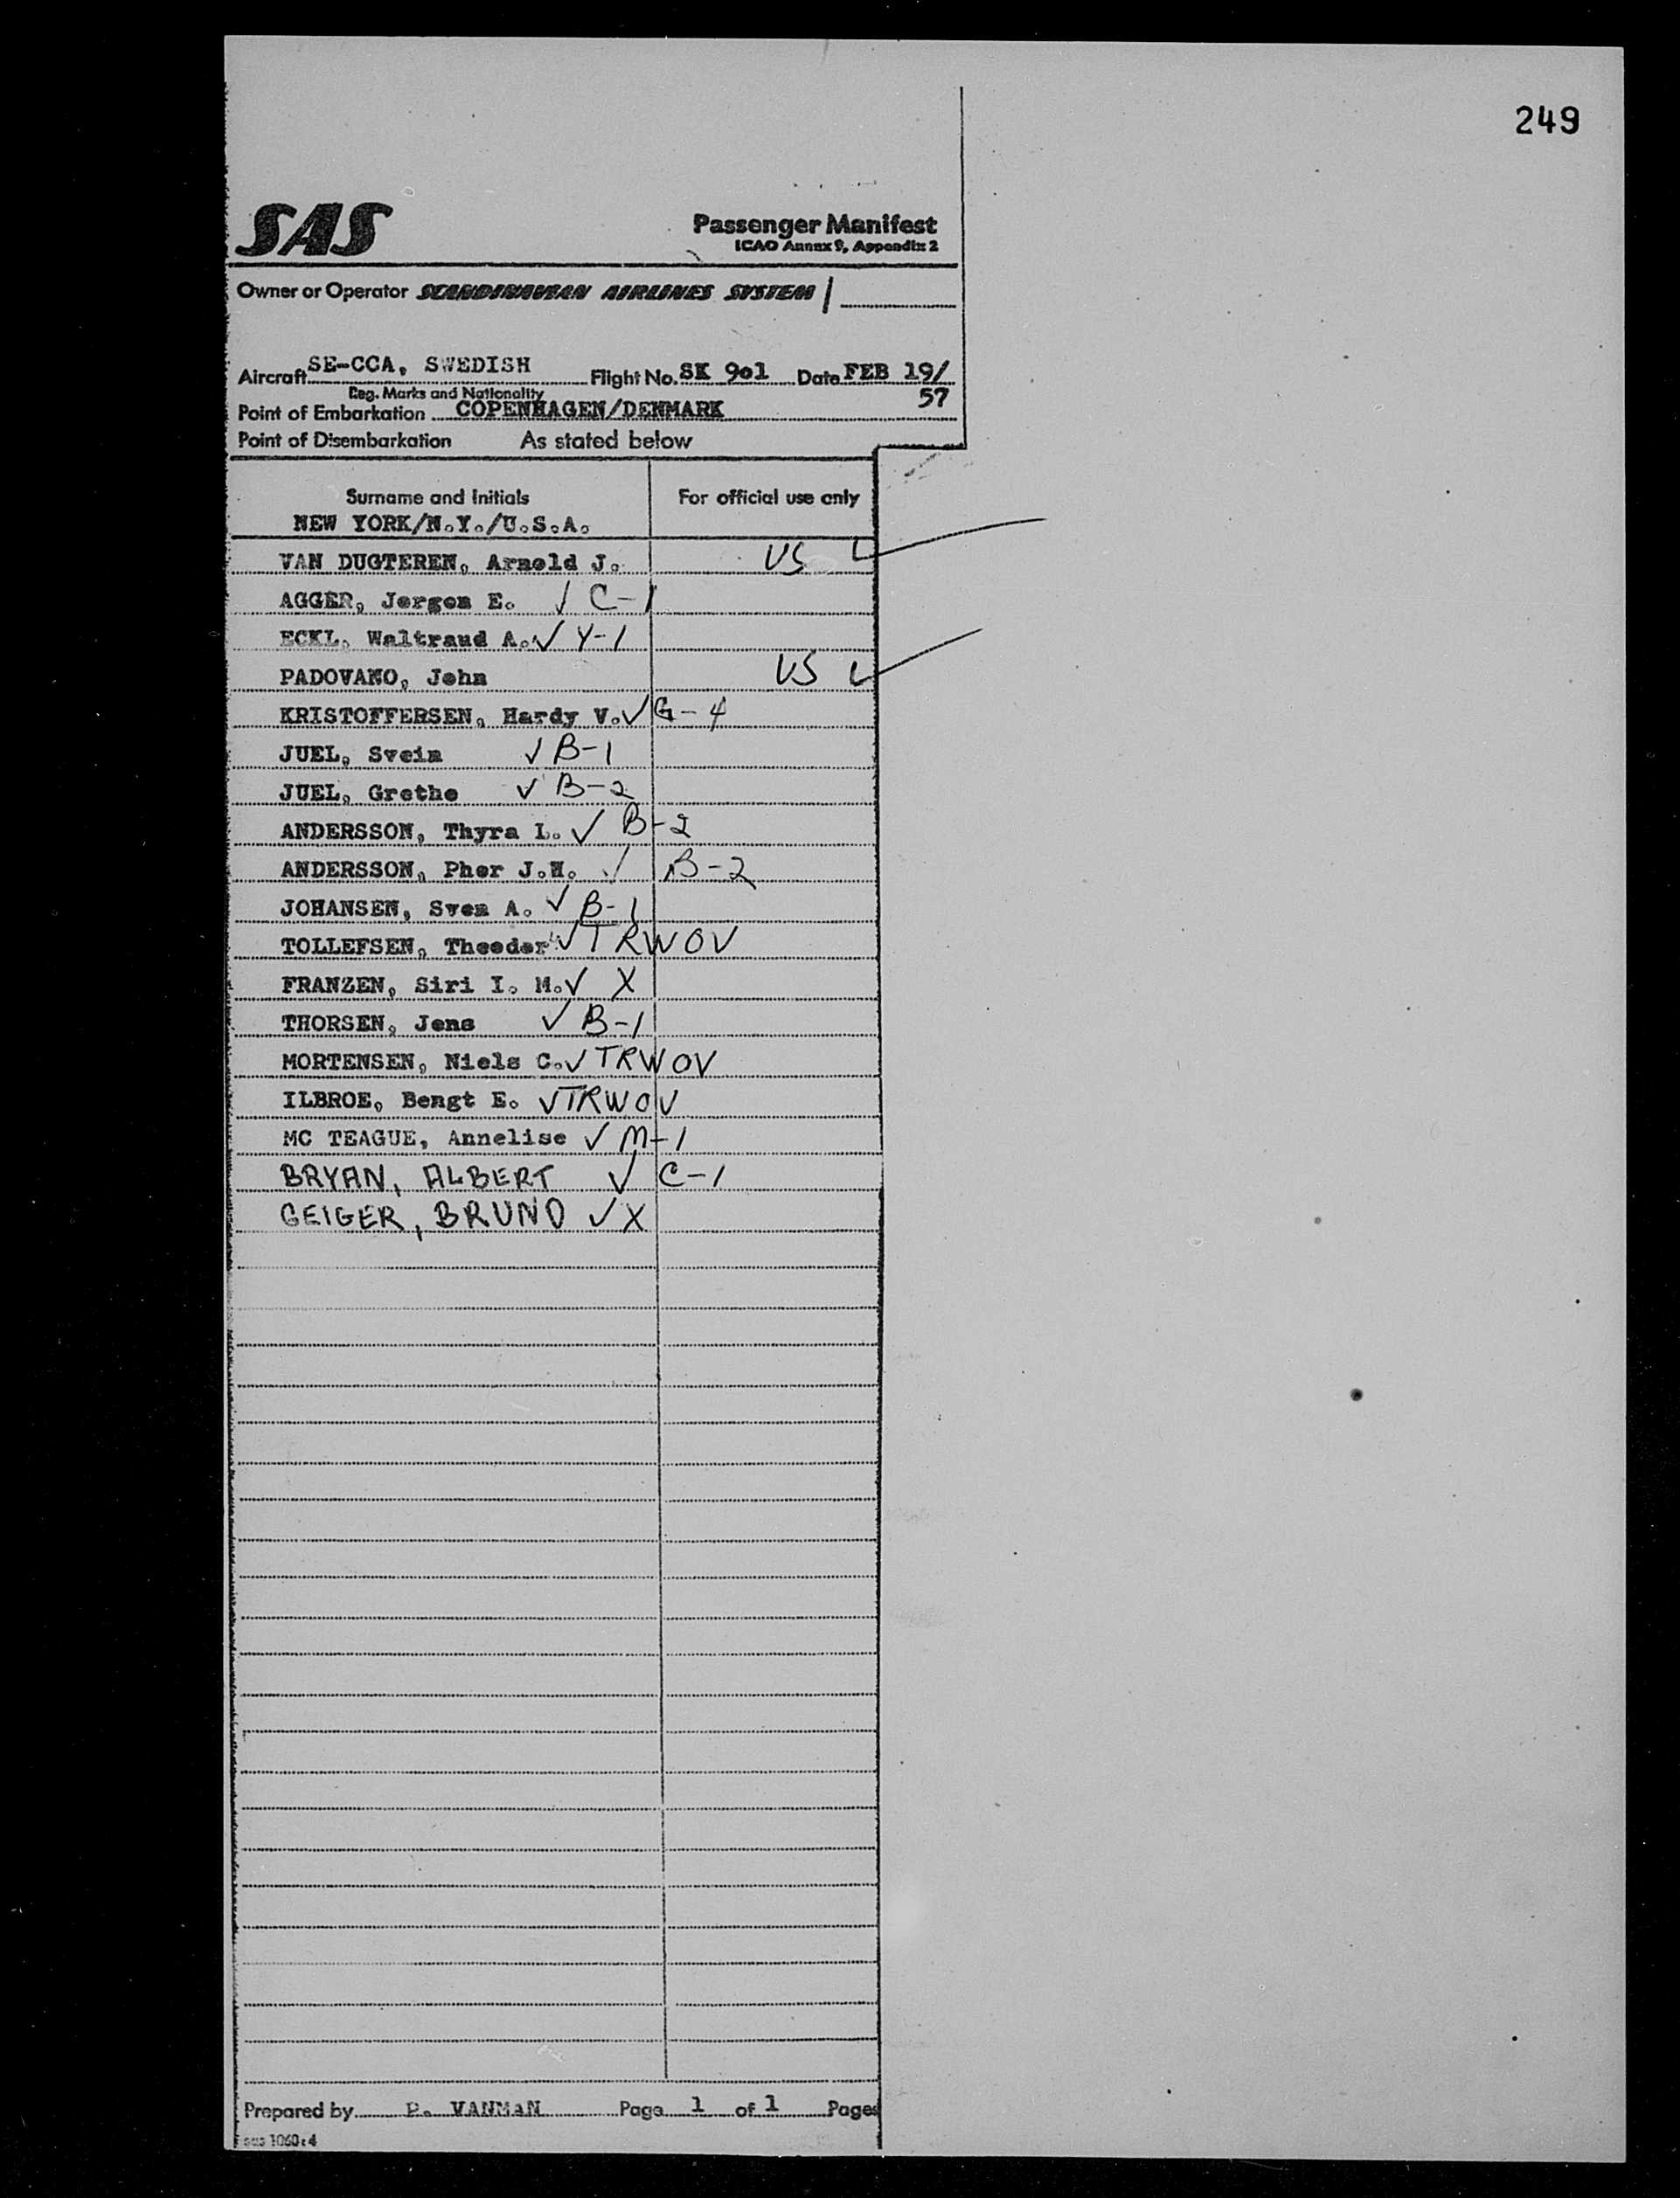 249
SAS
Passenger Manifest
ICAO Annex 9, Appendix 2
Owner or Operator SCANDINAVIAN AIRLINES SYSTEM
Aircraft SE-CCA, SWEDISH Flight No. SK 901 Date FEB 19/
Reg. Marks and Nationality 57
Point of Embarkation COPENHAGEN/DENMARK
Point of Disembarkation As stated below
Surname and Initials For official use only
NEW YORK/N.Y./U.S.A.
VAN DUGTEREN, Arnold J. US L
AGGER, Jorgen E. ✓ C-1
ECKL, Waltraud A. ✓ Y-1
PADOVANO, John US L
KRISTOFFERSEN, Hardy V. ✓ G-4
JUEL, Svein ✓ B-1
JUEL, Grethe ✓ B-2
ANDERSSON, Thyra L. ✓ B-2
ANDERSSON, Pher J.H. ✓ B-2
JOHANSEN, Sven A. ✓ B-1
TOLLEFSEN, Theodor ✓ TRWOV
FRANZEN, Siri I. M. ✓ X
THORSEN, Jens ✓ B-1
MORTENSEN, Niels C. ✓ TRWOV
ILBROE, Bengt E. ✓ TRWOV
MC TEAGUE, Annelise ✓ M-1
BRYAN, ALBERT ✓ C-1
GEIGER, BRUNO ✓ X
Prepared by P. VANMAN Page 1 of 1 Pages
sas 1060:4